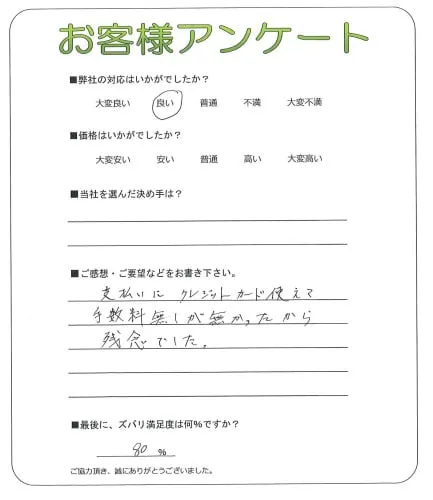 お客様アンケート
■弊社の対応はいかがでしたか？
大変良い 良い 普通 不満 大変不満
■価格はいかがでしたか？
大変安い 安い 普通 高い 大変高い
■当社を選んだ決め手は？
■ご感想・ご要望などをお書き下さい。
支払いに クレジットカード使えて
手数料無しが無かったから
残念でした。
■最後に、ズバリ満足度は何%ですか？
80 %
ご協力頂き、誠にありがとうございました。